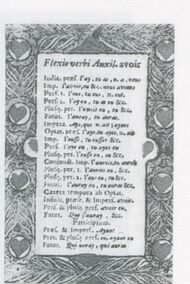 Flexio verbi Auxil. avoir
Indic. præs. I'ay, tu as, n. a, nous
Imp. I'avois, tu &c. nous avions
Perf. 1. I'eus, tu eus, n. eut,
Perf. 2. I'ay eu, tu as eu &c.
Plusq. per. I'avois eu, tu &c.
Futur. I'auray, tu auras,
Impera. Aye, que n. ait ayons
Optat. præs. I'aye, tu ayes, n. ait
Imp. I'eusse, tu eusse &c.
Perf. I'aye eu, tu ayes eu
Plusq. per. I'eusse eu, tu &c.
Conjunct. Imp. I'aurois, tu &c.
Plusq. per. 1. I'aurois eu,
Plusq. per. 2. I'eus eu, tu &c.
Futur. I'auray eu, tu auras &c.
Cætera tempora ab Optat.
Infinit. præs. & Imperf. avoir.
Perf. & plusq. perf. avoir eu,
Futur. Que j'auray, &c.
Participium.
Præs. & Imperf. Ayant
Per. & plusq. perf. eu, ayant eu
Futur. Qui auray, qui auras